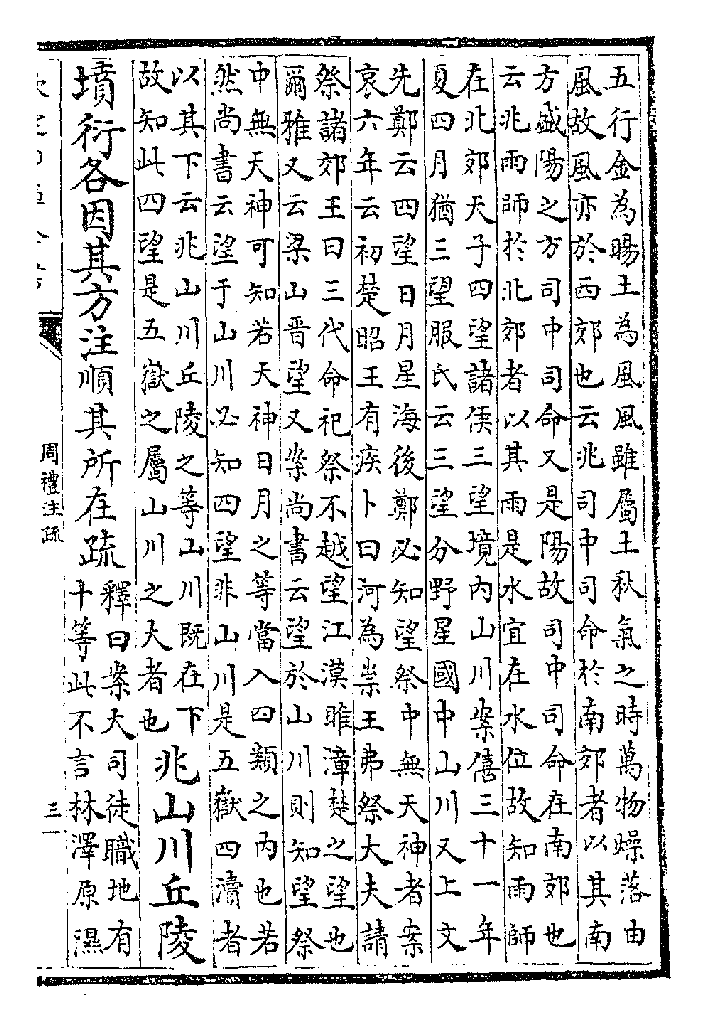 五行金為暘土為風風雖屬土秋氣之時萬物燥落由
風故風亦於西郊也云兆司中司命於南郊者以其南
方盛陽之方司中司命又是陽故司中司命在南郊也
云兆雨師於北郊者以其雨是水宜在水位故知雨師
在北郊天子四望諸侯三望境内山川案僖三十一年
夏四月猶三望服氏云三望分野星國中山川又上文
先鄭云四望日月星海後鄭必知望祭中無天神者案
哀六年云初楚昭王有疾卜曰河為祟王弗祭大夫請
祭諸郊王曰三代命祀祭不越望江漢雎漳楚之望也
爾雅又云梁山晋望又案尚書云望於山川則知望祭
中無天神可知若天神日月之等當入四類之内也若
然尚書云望于山川必知四望非山川是五嶽四瀆者
以其下云兆山川丘陵之等山川既在下
故知此四望是五嶽之屬山川之大者也
兆山川丘陵
墳衍各因其方注順其所在疏
釋曰案大司徒職地有
十等此不言林澤原濕
周禮注疏